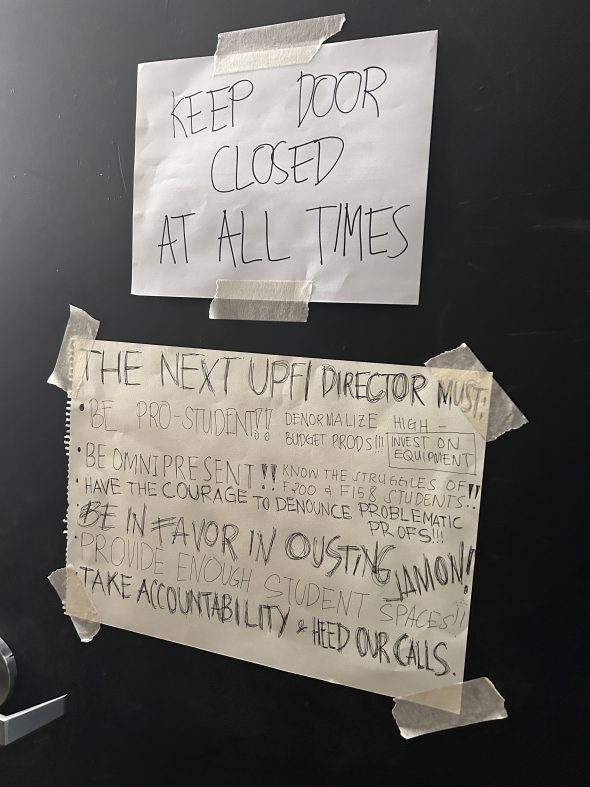 KEEP DOOR
CLOSED
AT ALL TIMES
THE NEXT UPFI DIRECTOR MUST:
• BE PRO-STUDENT!! DENORMALIZE HIGH-
BUDGET PRODS!!! INVEST ON
EQUIPMENT
• BE OMNIPRESENT!! KNOW THE STRUGGLES OF
F200 & F158 STUDENTS!!
• HAVE THE COURAGE TO DENOUNCE PROBLEMATIC
PROFS!!!
• BE IN FAVOR IN OUSTING JAMON!!
• PROVIDE ENOUGH STUDENT SPACES!!
TAKE ACCOUNTABILITY & HEED OUR CALLS.